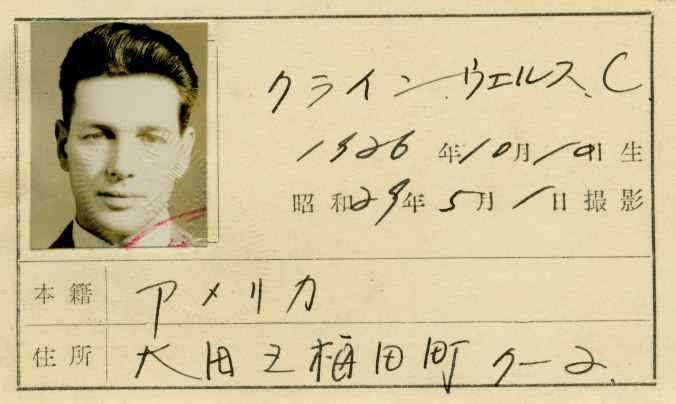 クライン ウエルス、C.
1926年10月10日生
昭和29年5月1日撮影
本籍 アメリカ
住所 大田区 田町 2